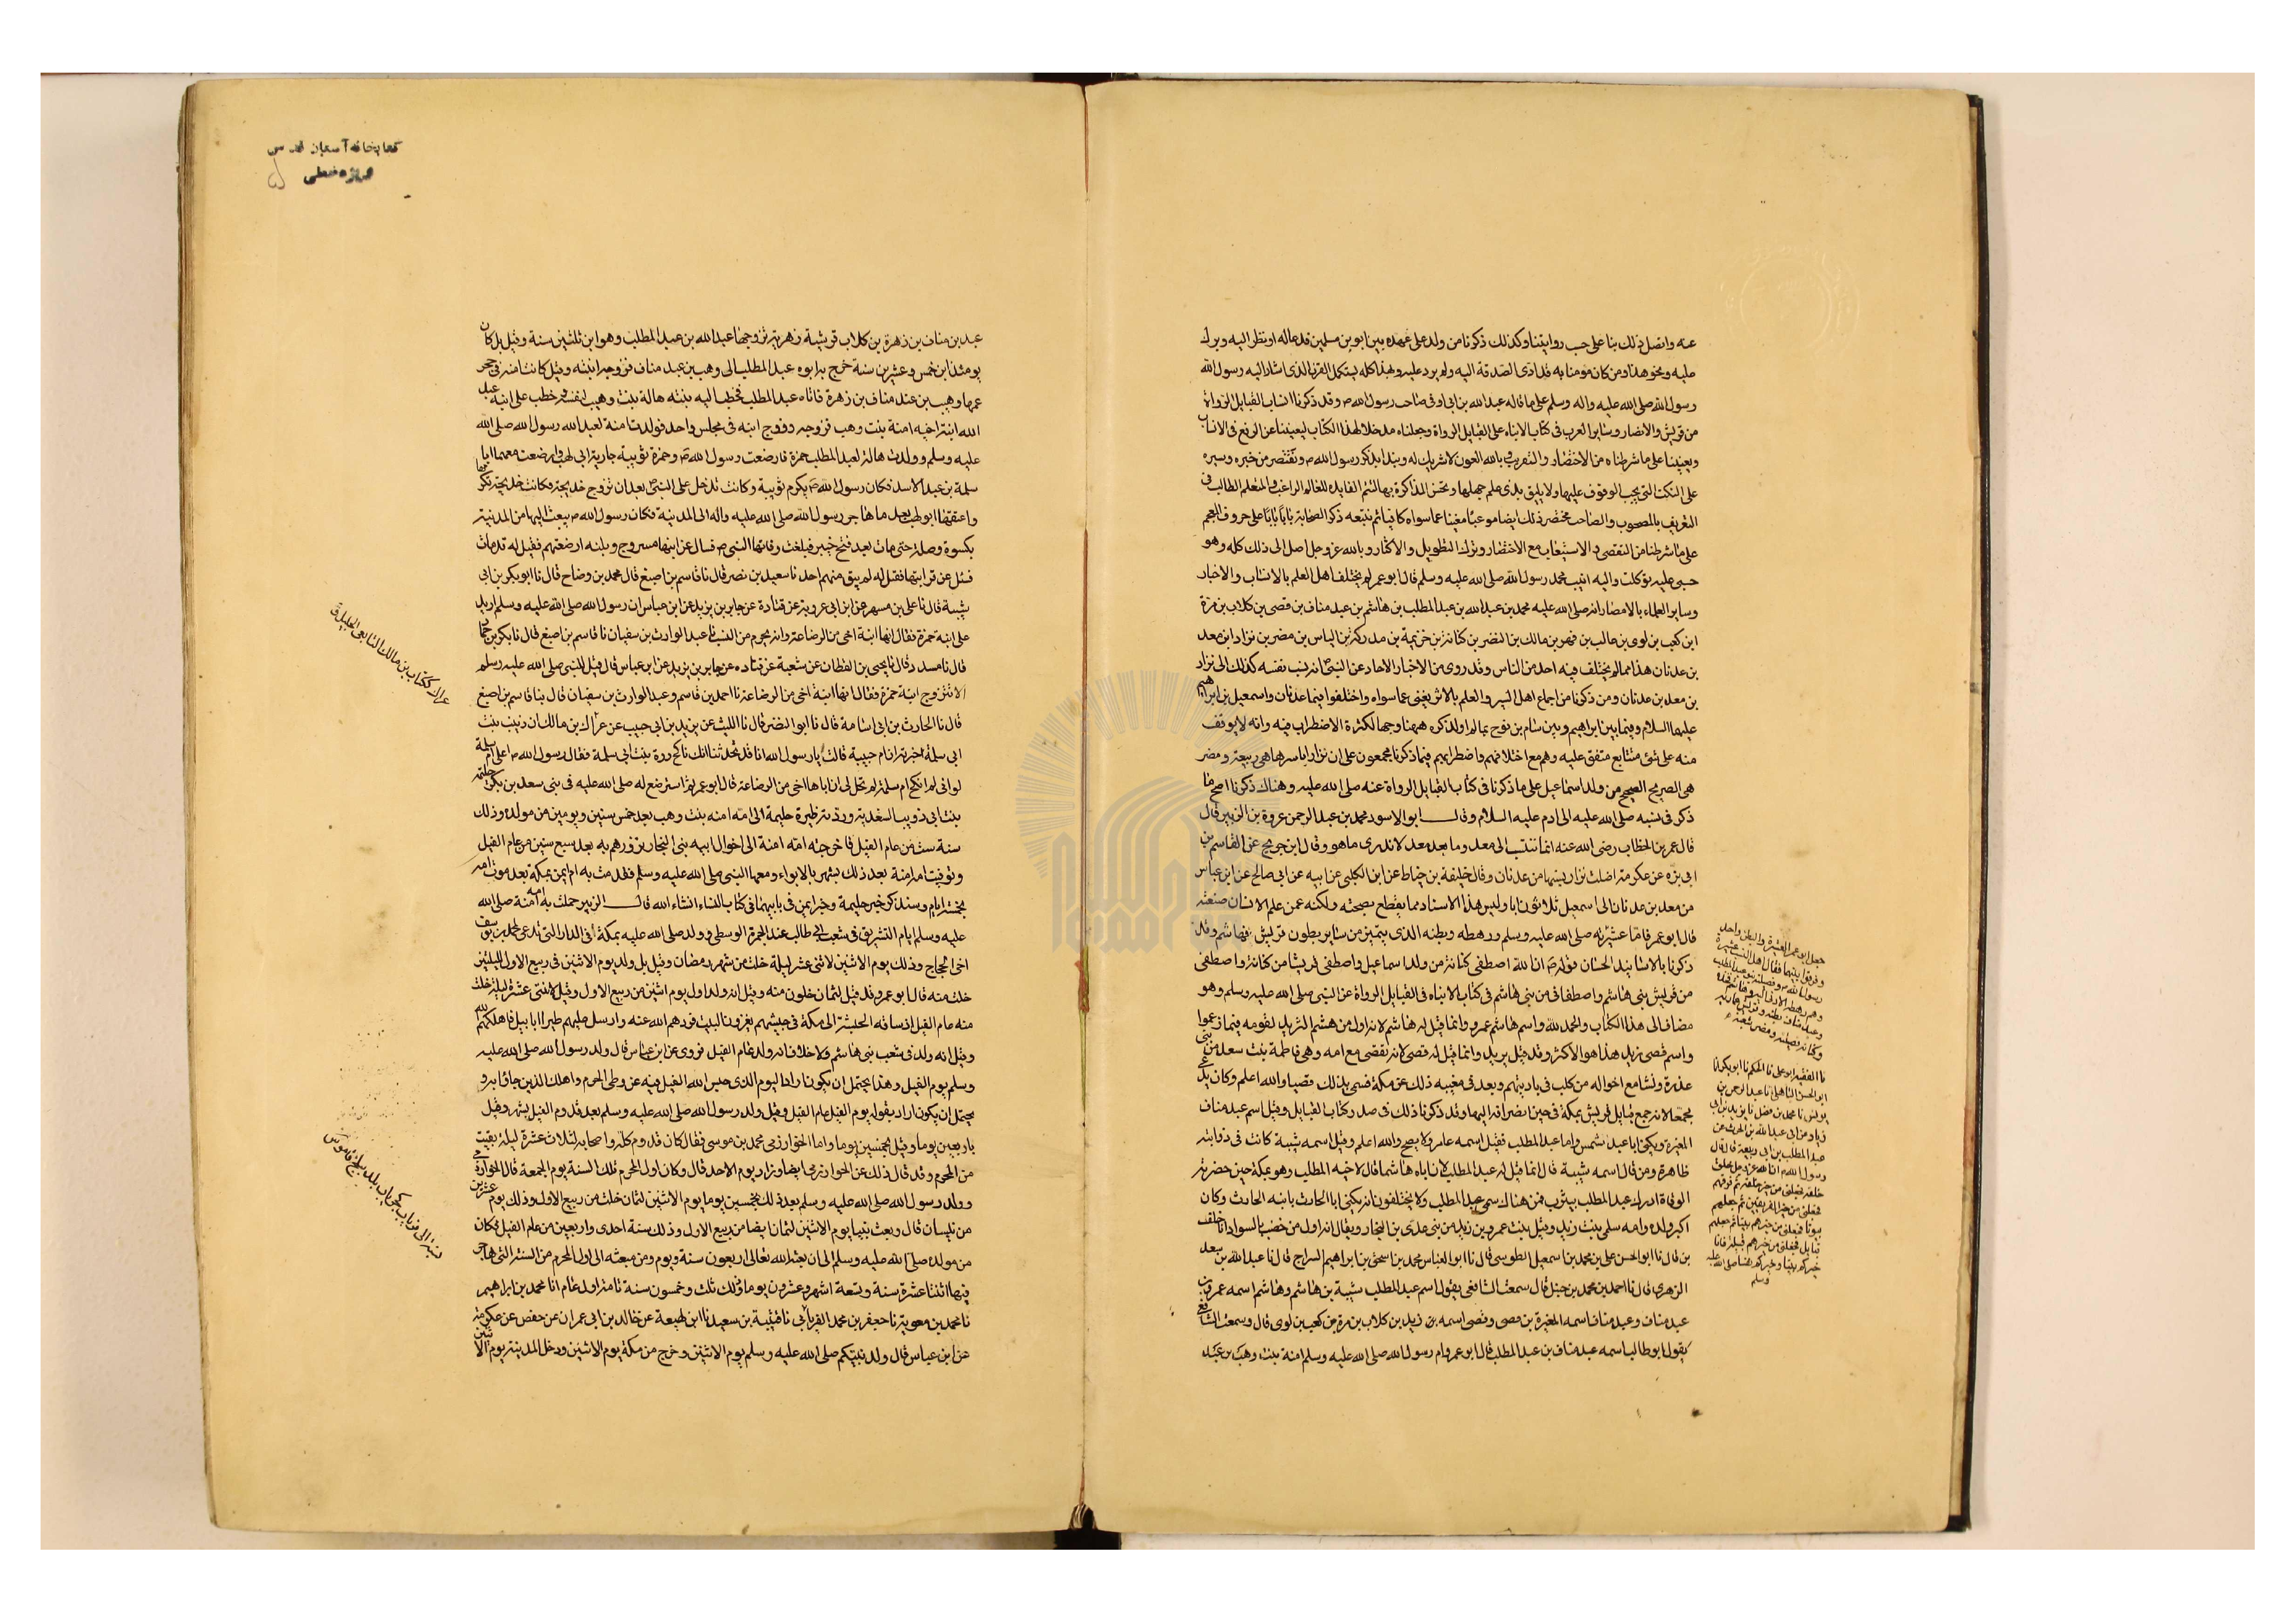 عنه واتصل ذلك بنا على حسب روايتنا وكذلك ذكرنا من ولد على عهده بين ابوين مسلمين قدعاله او نظر اليه وبرك
عليه ونحو هذا ومن كان مومنا به قد ادى الصدقة اليه ولم يرد عليه وبهذا كله يستكمل القرن الذى اشار اليه رسول الله
رسول الله صلى الله عليه واله وسلم على ما قاله عبد الله بن ابى اوفى صاحب رسول الله ص وقد ذكرنا انساب القبايل الرواة
من قريش والانصار وساير العرب فى كتاب الانباه على القبايل الرواة وجعلناه مدخلا لهذا الكتاب ليغنينا عن الرفع فى الانساب
ويعيننا على ما شرطناه من الاختصار والتقريب وبالله العون لا شريك له ونبدا بذكر رسول الله ص ونقتصر من خبره وسيره
على النكت التى يجب الوقوف عليها ولا يليق بذى علم جهلها وتحسن المذاكرة بها لتتم الفايده للعالم الراغب والمتعلم الطالب فى
التعريف بالمصحوب والصاحب مختصر ذلك ايضا موعبا مغنيا عما سواه كافيا ثم نتبعه ذكر الصحابة بابا بابا على حروف المعجم
على ما شرطنا من التقصى والاستيعاب مع الاختصار وترك التطويل والاكثار وبالله عز وجل اصل الى ذلك كله وهو
حسبى عليه توكلت واليه انيب محمد رسول الله صلى الله عليه وسلم قال ابو عمر لم يختلف اهل العلم بالانساب والاخبار
وساير العلماء بالامصار انه صلى الله عليه محمد بن عبد الله بن عبد المطلب بن هاشم بن عبد مناف بن قصى بن كلاب بن مرة
ابن كعب بن لوى بن غالب بن فهر بن مالك بن النضر بن كنانة بن خزيمة بن مدركة بن الياس بن مضر بن نزار ابن معد
بن عدنان هذا مما لم يختلف فيه احد من الناس وقد روى من الاخبار الاحاد عن النبى ص انه نسب نفسه كذلك الى نزار
بن معد بن عدنان ومن ذكرنا من اجماع اهل السير والعلم بالاثر يغنى عما سواه واختلفوا فيما عدنان واسمعيل بن ابراهيم
عليهما السلام وفيما بين ابراهيم وبين سام بن نوح بما لم اولذكره ههنا وجها لكثرة الاضطراب فيه وانه لا يوقف
منه على شئ متتابع متفق عليه وهم مع اختلافهم واضطرابهم فيما ذكرنا مجمعون على ان نزارا باسرها هى ربيعة ومضر
هى الصريح الصحيح من ولد اسماعيل على ما ذكرنا فى كتاب القبايل الرواة عنه صلى الله عليه وهناك ذكرنا اصح ما
ذكر فى نسبه صلى الله عليه الى ادم عليه السلام وقال ابو الاسود محمد بن عبد الرحمن عروة بن الزبير قال
قال عمر بن الخطاب رضى الله عنه انما ننتسب الى معد وما بعد معد لا ندرى ما هو وقال ابن جريج عن القاسم بن
ابى بزه عن عكرمة اضلت نزار نسبها من عدنان وقال خليفة بن خياط عن ابن الكلبى عن ابيه عن ابى صالح عن ابن عباس
من معد بن عدنان الى اسمعيل ثلاثون ابا وليس هذا الاسناد مما يقطع بصحته ولكنه عمن علم الانساب صنعته
قال ابو عمر فاما عشيرته صلى الله عليه وسلم ورهطه وبطنه الذى يتميز من ساير بطون قريش فبها شم وقد
ذكرنا بالاسانيد الحسان قوله ص ان الله اصطفى كنانة من ولد اسماعيل واصطفى قريشا من كنانة واصطفى
من قريش بنى هاشم واصطفانى من بنى هاشم فى كتاب الانباه فى القبايل الرواة عن النبى صلى الله عليه وسلم وهو
مضاف الى هذا الكتاب والحمد لله واسم هاشم عمرو وانما قيل له هاشم لانه اول من هشم الثريد لقومه فيما زعموا
واسم قصى زيد هذا هو الاكثر وقد قيل يزيد وانما قيل له قصى لانه تقصى مع امه وهى فاطمة بنت سعد من بنى
عذرة ونشا مع اخواله من كلب فى باديتهم وبعد فى مغيبه ذلك عن مكة فسمى بذلك قصيا والله اعلم وكان يدعى
مجمعا لانه جمع قبايل قريش بمكة فى حين انصرافه اليها وقد ذكرنا ذلك فى صدر كتاب القبايل وقيل اسم عبد مناف
المغيرة ويكنى ابا عبد شمس واما عبد المطلب فقيل اسمه عامر ولا يصح والله اعلم وقيل اسمه شيبة كانت فى ذوابته
ظاهرة ومن قال اسمه شيبة قال انما قيل له عبد المطلب لان اباه هاشما قال لاخيه المطلب وهو بمكة حين حضرته
الوفاة ادرك عبد المطلب بيثرب فمن هناك سمى عبد المطلب ولا يختلفون انه يكنى ابا الحارث بابنه الحارث وكان
اكبر ولده وامه سلمى بنت زيد وقيل بنت عمرو بن زيد من بنى عدى بن النجار ويقال انه اول من خضب بالسواد انا خلف
بن قال نا ابو الحسن على بن محمد بن اسمعيل الطوسى قال نا ابو العباس محمد بن اسحق بن ابراهيم السراج قال نا عبد الله بن سعد
الزهرى قال نا احمد بن محمد بن حنبل قال سمعت الشافعى يقول اسم عبد المطلب شيبة بن هاشم وهاشم اسمه عمرو بن
عبد مناف وعبد مناف اسمه المغيرة بن قصى وقصى اسمه زيد بن كلاب بن مرة بن كعب بن لوى قال وسمعت الشافعى
يقول ابو طالب اسمه عبد مناف بن عبد المطلب قال ابو عمر وام رسول الله صلى الله عليه وسلم امنة بنت وهب بن عبد
جعل ابو عمر العشيرة والبطن واحد
وفرقوا بينهما فقال اهل النسب عشيرة
رسول الله ص وفصيلته بنو عبد المطلب
نا الفقيه ابو على نا الحكم نا ابو بكر نا
ابو الحسن الباهلى نا عبد الرحمن بن
يونس نا محمد بن فضل نا يزيد بن ابى
زياد عن ابى عبد الله بن الحرث عن
عبد المطلب بن ابى ربيعة قال قال
رسول الله ص ان الله عز وجل خلق
خلقه فجعلنى من خير خلقه ثم فرقهم
فجعلنى من خير الفريقين ثم جعلهم
بيوتا فجعلنى من خيرهم بيتا ثم جعلهم
قبايل فجعلنى من خيرهم قبيلة فانا
خيركم بيتا وخيركم نفسا صلى الله عليه
وسلم
كتابخانه آستان قدس
عبد بن مناف بن زهرة بن كلاب قرشية زهرية تزوجها عبد الله بن عبد المطلب وهو ابن ثلثين سنة وقيل بل كان
يومئذ ابن خمس وعشرين سنة خرج به ابوه عبد المطلب الى وهب بن عبد مناف فزوجه ابنته وقيل كانت امنه فى حجر
عمها وهيب بن عبد مناف بن زهرة فاتاه عبد المطلب فخطب اليه بنته هالة بنت وهيب لنفسه وخطب على ابنه عبد
الله ابنة اخيه امنة بنت وهب فزوجه وزوج ابنه فى مجلس واحد فولدت امنة لعبد الله رسول الله صلى الله
عليه وسلم وولدت هالة لعبد المطلب حمزة فارضعت رسول الله ص وحمزة ثويبة جارية ابى لهب وارضعت معهما ابا
سلمة بن عبد الاسد فكان رسول الله ص يكرم ثويبة وكانت تدخل على النبى ص بعد ان تزوج خديجة فكانت خديجة تكرمها
واعتقها ابو لهب بعد ما هاجر رسول الله صلى الله عليه واله الى المدينة فكان رسول الله ص يبعث اليها من المدينة
بكسوة وصلة حتى ماتت بعد فتح خيبر فبلغت وفاتها النبى ص فسال عن ابنها مسروح وبلبنه ارضعتهم فقيل له قد مات
فسئل عن قرابتها فقيل له لم يبق منهم احد نا سعيد بن نصر قال نا قاسم بن اصبغ قال محمد بن وضاح قال نا ابو بكر بن ابى
شيبة قال نا على بن مسهر عن ابن ابى عروبة عن قتادة عن جابر بن يزيد عن ابن عباس ان رسول الله صلى الله عليه وسلم اريد
على ابنة حمزة فقال انها ابنة اخى من الرضاعة وانه يحرم من النسب نا عبد الوارث بن سفيان نا قاسم بن اصبغ قال نا بكر بن حماد
قال نا مسدد قال نا يحيى بن القطان عن شعبة عن قتاده عن جابر بن يزيد عن ابن عباس قال قيل للنبى صلى الله عليه وسلم
الا تتزوج ابنة حمزة فقال انها ابنة اخى من الرضاعة نا احمد بن قاسم وعبد الوارث بن سفيان قال نا قاسم بن اصبغ
قال نا الحارث بن ابى اسامة قال نا ابو النضر قال نا الليث عن يزيد بن ابى حبيب عن عراك بن مالك ان زينب بنت
ابى سلمة اخبرته ان ام حبيبة قالت يا رسول الله انا قد تحدثنا انك ناكح درة بنت ابى سلمة فقال رسول الله ص اعلى ام سلمة
لو انى لم انكح ام سلمة لم تحل لى ان اباها اخى من الرضاعة قال ابو عمر ثم استرضع له صلى الله عليه فى بنى سعد بن بكر حليمة
بنت ابى ذويب السعدية وردته ظئره حليمة الى امه امنه بنت وهب بعد خمس سنين ويومين من مولده وذلك
سنة ست من عام الفيل فاخرجته امه امنة الى اخوال ابيه بنى النجار تزورهم به بعد سبع سنين من عام الفيل
وتوفيت امه امنة بعد ذلك بشهر بالابواء ومعها النبى صلى الله عليه وسلم فقدمت به ام ايمن بمكة بعد موت امه
بخمسة ايام وسنذكر خبر حليمة وخبر ايمن فى بابيهما فى كتاب النساء انشاء الله قال الزبير حملت به امه امنة صلى الله
عليه وسلم ايام التشريق فى شعب ابى طالب عند الجمرة الوسطى وولد صلى الله عليه بمكة فى الدار التى تدعى لمحمد بن يوسف
اخى الحجاج وذلك يوم الاثنين لاثنى عشر ليلة خلت من شهر رمضان وقيل بل ولد يوم الاثنين فى ربيع الاول لليلتين
خلت منه قال ابو عمر وقد قيل لثمان خلون منه وقيل انه ولد اول يوم اثنين من ربيع الاول وقيل لاثنتى عشرة ليلة خلت
منه عام الفيل اذ ساقه الحبشة الى مكة فى جيشهم يغزون البيت فردهم الله عنه وارسل عليهم طيرا ابابيل فاهلكتهم
وقيل انه ولد فى شعب بنى هاشم ولا خلاف انه ولد عام الفيل فروى عن ابن عباس قال ولد رسول الله صلى الله عليه
وسلم يوم الفيل وهذا يحتمل ان يكون اراد اليوم الذى حبس الله الفيل فيه عن وطى الحرم واهلك الذين جاؤا به و
يحتمل ان يكون اراد بقوله يوم الفيل عام الفيل وقيل ولد رسول الله صلى الله عليه وسلم بعد قدوم الفيل بشهر وقيل
باربعين يوما وقيل بخمسين يوما واما الخوارزمى محمد بن موسى فقال كان قدوم مكة واصحابه لثلاث عشرة ليلة بقيت
من المحرم وقد قال ذلك غير الخوارزمى ايضا وزاد يوم الاحد قال وكان اول المحرم تلك السنة يوم الجمعة قال الخوارزمى
وولد رسول الله صلى الله عليه وسلم بعد ذلك بخمسين يوما يوم الاثنين لثمان خلت من ربيع الاول وذلك يوم عشرين
من نيسان قال وبعث نبيا يوم الاثنين لثمان ايضا من ربيع الاول وذلك سنة احدى واربعين من عام الفيل فكان
من مولده صلى الله عليه وسلم الى ان بعثه الله تعالى اربعون سنة ويوم ومن مبعثه الى اول المحرم من السنة التى هاجر
فيها اثنتا عشرة سنة وتسعة اشهر وعشرون يوما وذلك ثلث وخمسون سنة تامة من اول عام انا محمد بن ابراهيم
نا محمد بن معوية نا جعفر بن محمد الفريابى نا قتيبة بن سعيد نا ابن لهيعة عن خالد بن ابى عمران عن حفص عن عكرمة
عن ابن عباس قال ولد نبيكم صلى الله عليه وسلم يوم الاثنين وخرج من مكة يوم الاثنين ودخل المدينة يوم الاثنين
عراك ككتاب بن مالك التابعى الجليل ق